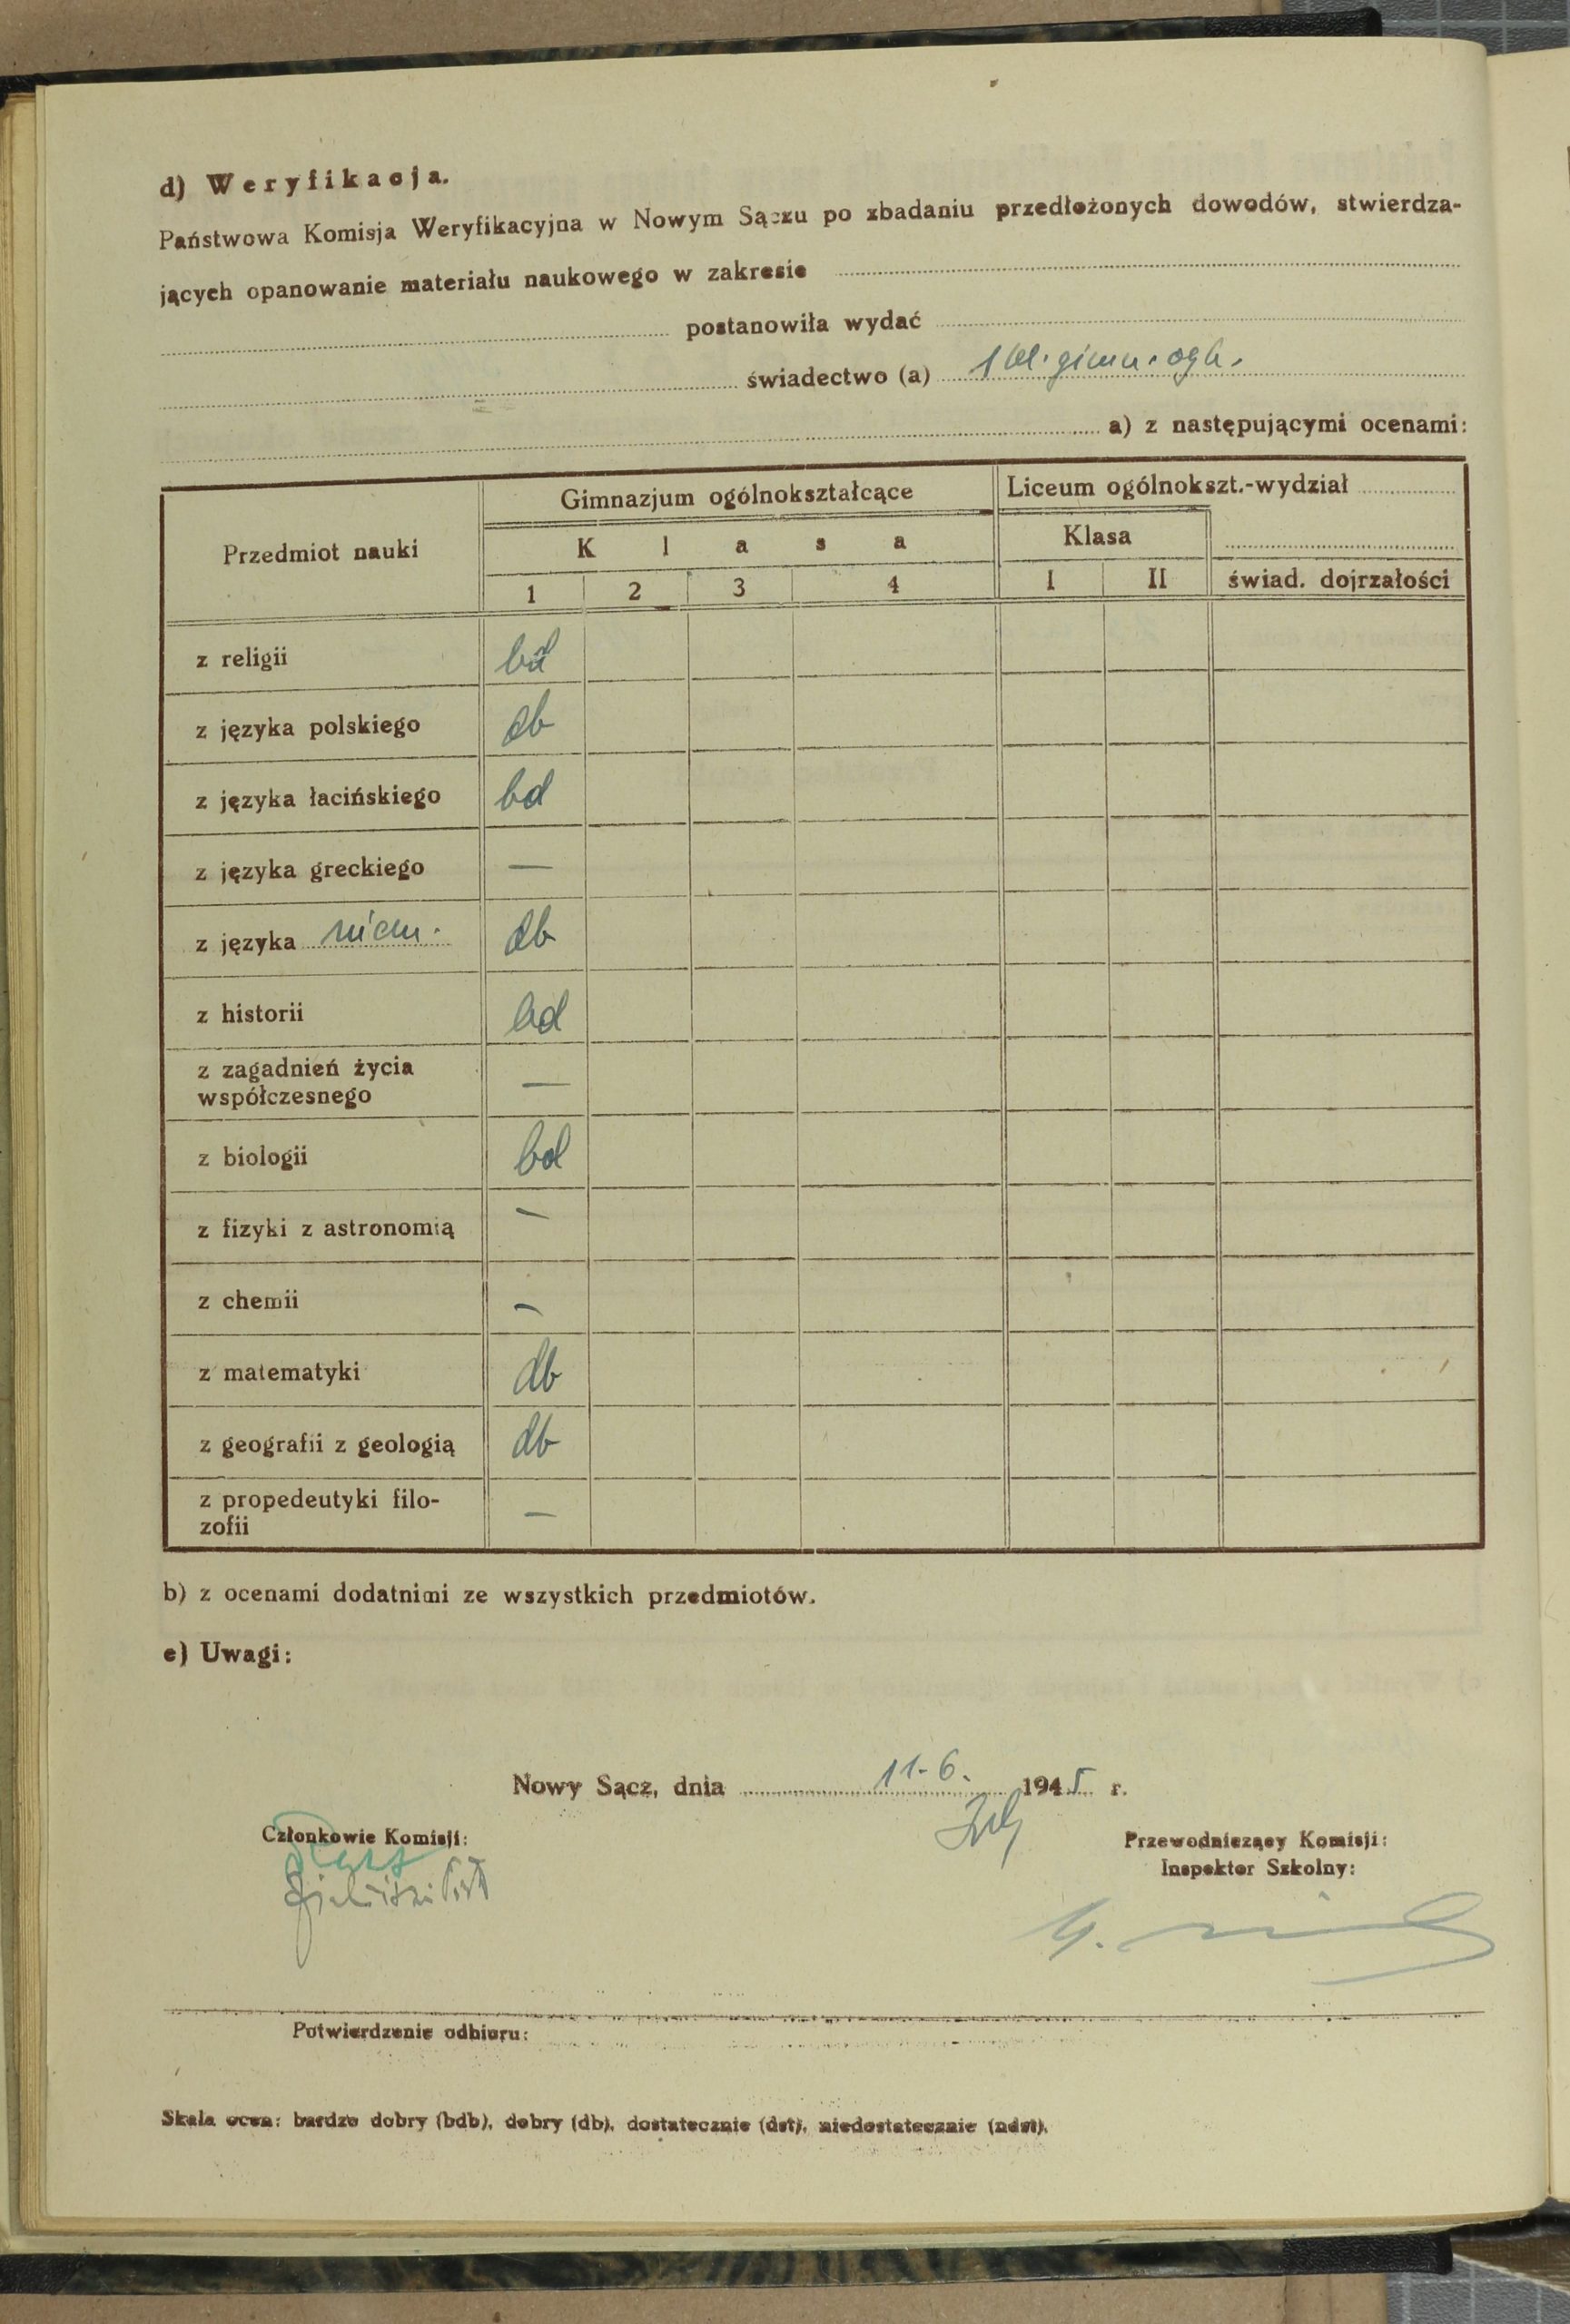 d) Weryfikacja.
Państwowa Komisja Weryfikacyjna w Nowym Sączu po zbadaniu przedłożonych dowodów, stwierdza-
jących opanowanie materiału naukowego w zakresie
postanowiła wydać
świadectwo (a) 1 kl. gimn. ogk.
a) z następującymi ocenami:
Przedmiot nauki
Gimnazjum ogólnokształcące
Liceum ogólnokszt.-wydział
Klasa
Klasa
1 2 3 4 I II świad. dojrzałości
z religii bd
z języka polskiego db
z języka łacińskiego bd
z języka greckiego —
z języka niem. db
z historii bd
z zagadnień życia
współczesnego —
z biologii bd
z fizyki z astronomią —
z chemii —
z matematyki db
z geografii z geologią db
z propedeutyki filo-
zofii —
b) z ocenami dodatnimi ze wszystkich przedmiotów.
e) Uwagi:
Nowy Sącz, dnia 11-6. 1945 r.
Członkowie Komisji:
Przewodniczący Komisji:
Inspektor Szkolny:
Potwierdzenie odbioru:
Skala ocen: bardzo dobry (bdb), dobry (db), dostatecznie (dst), niedostatecznie (ndst).